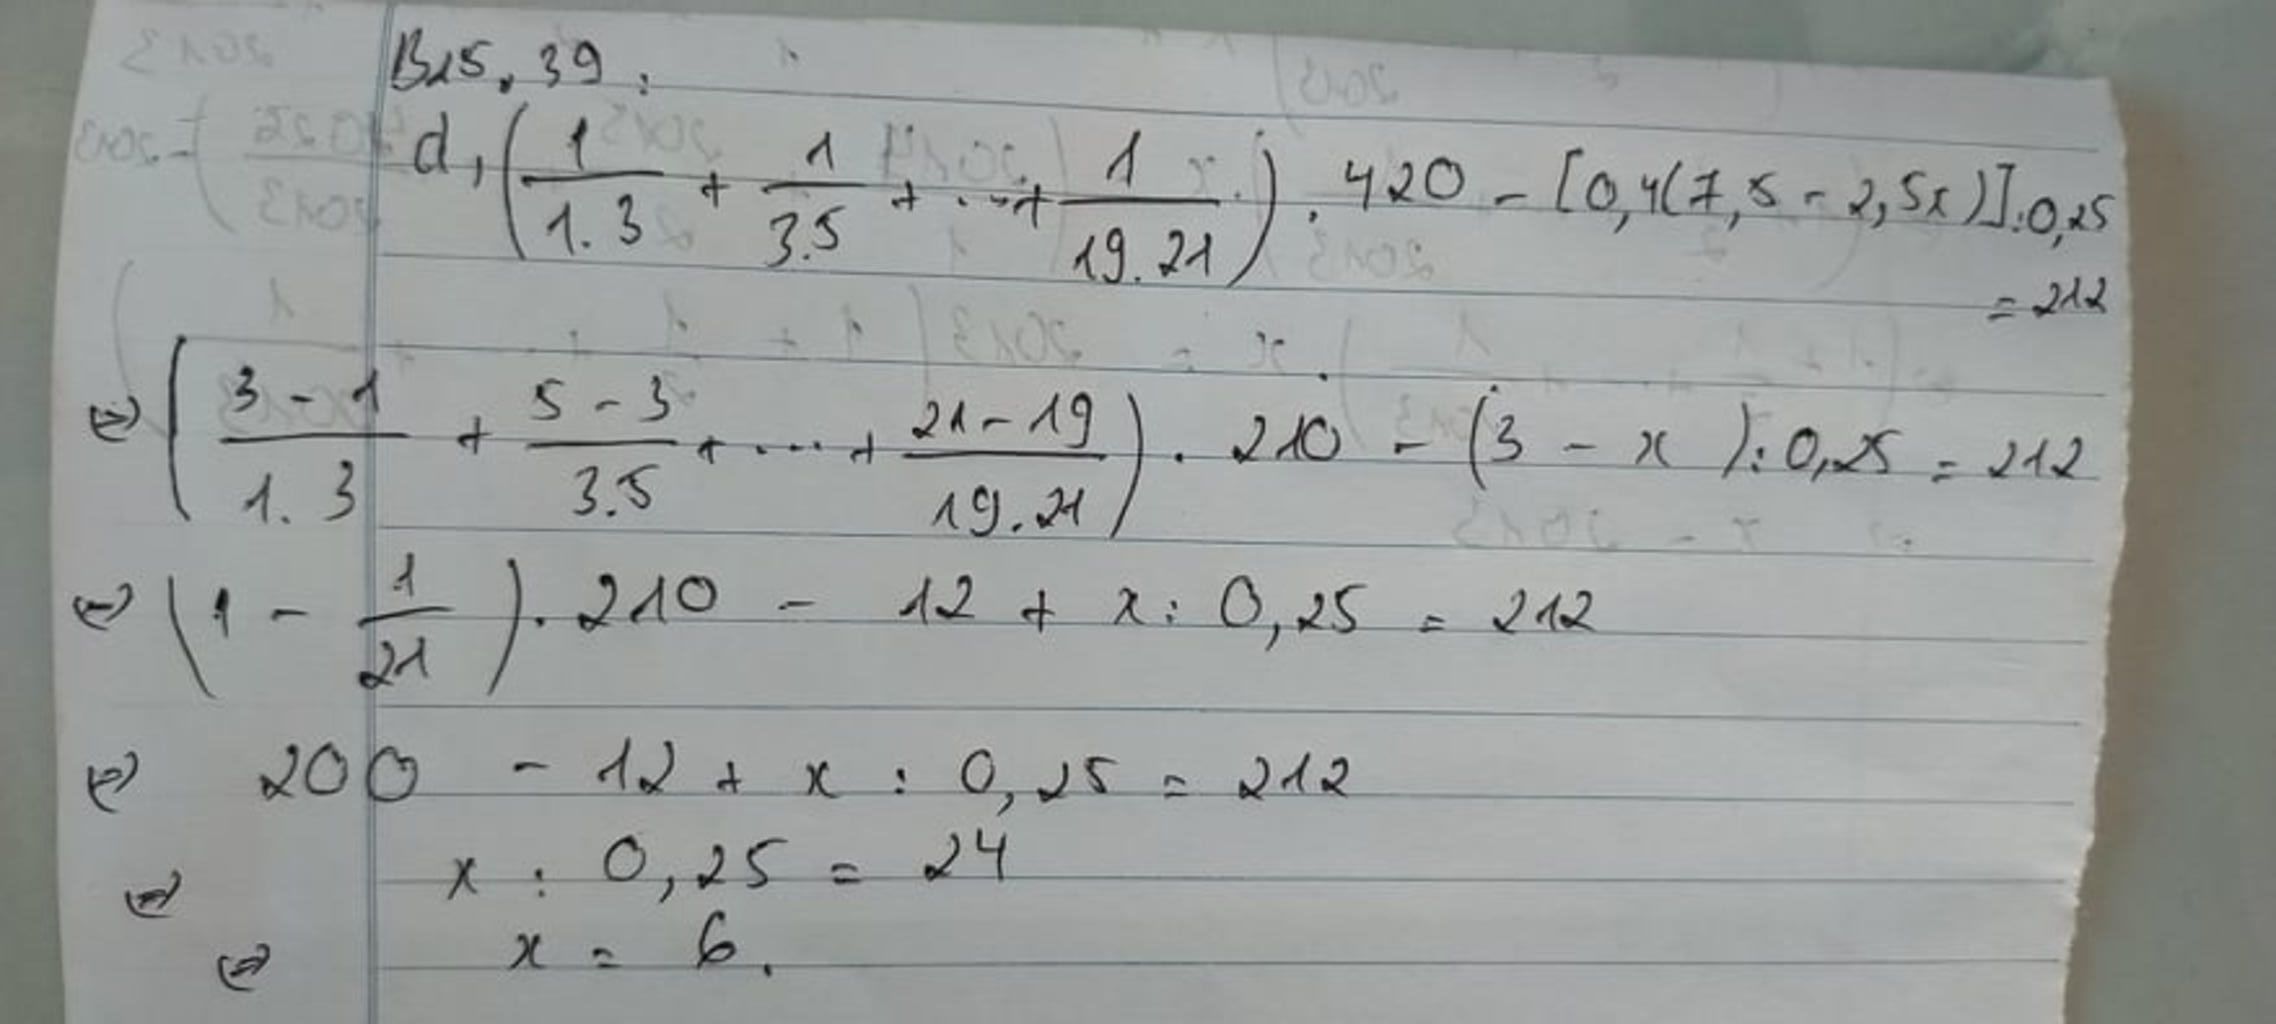 B15.39:
d, (1/1.3 + 1/3.5 + ... + 1/19.21) . 420 - [0,4(7,5 - 2,5x)] : 0,25
= 212
⇔ (3 - 1/1.3 + 5 - 3/3.5 + .... + 21 - 19/19.21) . 210 - (3 - x) : 0,25 = 212
⇔ (1 - 1/21) . 210 - 12 + x : 0,25 = 212
⇔ 200 - 12 + x : 0,25 = 212
⇔ x : 0,25 = 24
⇔ x = 6.